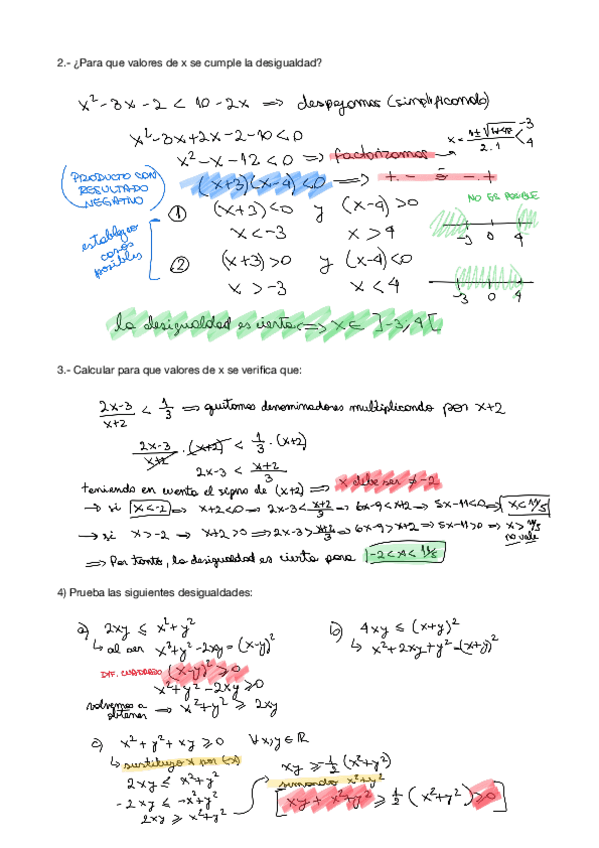 2.- ¿Para que valores de x se cumple la desigualdad?
x² - 3x - 2 < 10 - 2x ⇒ despejamos (simplificando)
x² - 3x + 2x - 2 - 10 < 0
x² - x - 12 < 0 ⇒ factorizamos →
2·1
-3
4
(PRODUCTO CON RESULTADO NEGATIVO)
(x+3)(x-4) < 0 ⇒ + · - ó - · +
establezco casos posibles
① (x+3) < 0 y (x-4) > 0
NO ES POSIBLE
x < -3 x > 4
-3 0 4
② (x+3) > 0 y (x-4) < 0
x > -3 x < 4
-3 0 4
la desigualdad es cierta ⇒ x ∈ ]-3, 4[
3.- Calcular para que valores de x se verifica que:
(2x-3)/(x+2) < 1/3 ⇒ quitamos denominadores multiplicando por x+2
(2x-3)/(x+2) · (x+2) < 1/3 · (x+2)
2x-3 < (x+2)/3
teniendo en cuenta el signo de (x+2) ⇒ x debe ser ≠ -2
→ si x < -2 ⇒ x+2 < 0 → 2x-3 < (x+2)/3 → 6x-9 < x+2 → 5x-11 < 0 ⇒ x < 11/5
→ si x > -2 → x+2 > 0 ⇒ 2x-3 > (x+2)/3 ⇒ 6x-9 > x+2 ⇒ 5x-11 > 0 ⇒ x > 11/5
no vale
⇒ Por tanto, la desigualdad es cierta para -2 < x < 11/5
4) Prueba las siguientes desigualdades:
a) 2xy ≤ x² + y²
↳ al ser x² + y² - 2xy = (x-y)²
DIF. CUADRADO (x-y)² ≥ 0
x² + y² - 2xy ≥ 0
volvemos a obtener ⇒ x² + y² ≥ 2xy
b) 4xy ≤ (x+y)²
↳ x² + 2xy + y² = (x+y)²
c) x² + y² + xy ≥ 0 ∀x,y ∈ ℝ
↳ sustituyo x por (-x)
2xy ≤ x² + y²
-2xy ≤ -x² + y²
2xy ≥ x² + y²
xy ≥ -1/2 (x² + y²)
sumando x² + y²
[xy + x² + y² ≥ 1/2 (x² + y²) ≥ 0]